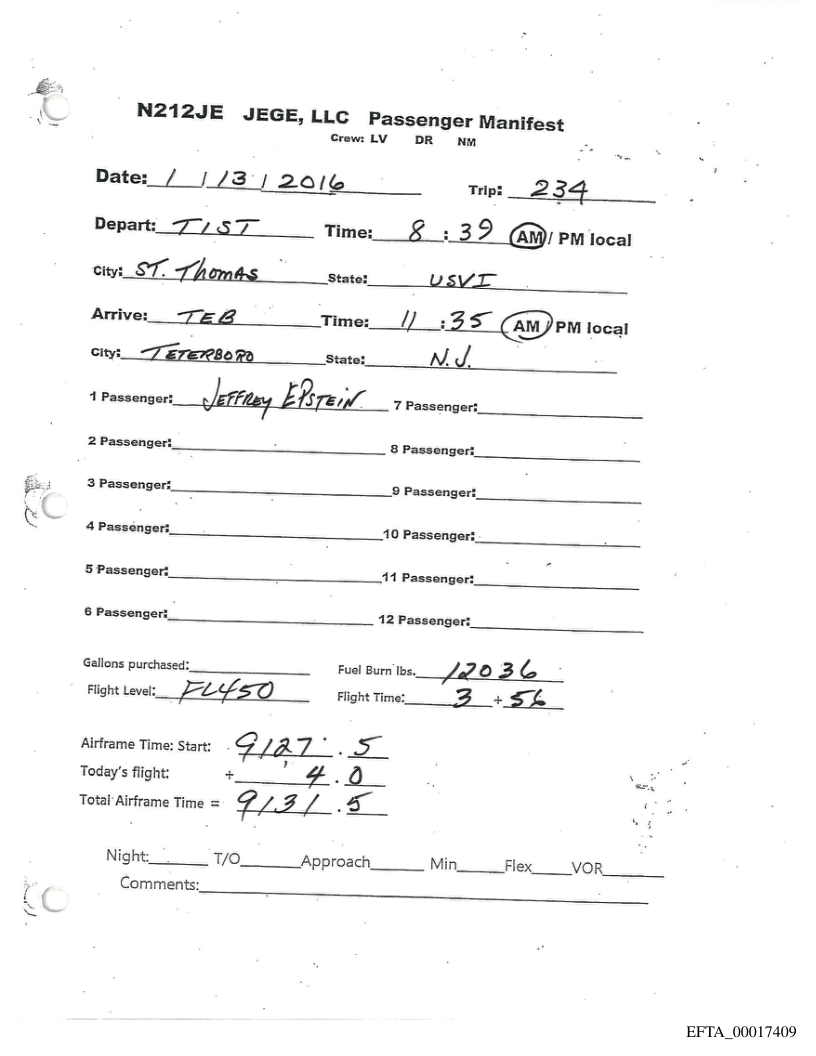 N212JE JEGE, LLC Passenger Manifest
Crew: LV DR NM
Date: 1 / 13 / 2016 Trip: 234
Depart: TIST Time: 8 : 39 AM / PM local
City: ST. THOMAS State: USVI
Arrive: TEB Time: 11 : 35 AM / PM local
City: TETERBORO State: N.J.
1 Passenger: JEFFREY EPSTEIN 7 Passenger:
2 Passenger: 8 Passenger:
3 Passenger: 9 Passenger:
4 Passenger: 10 Passenger:
5 Passenger: 11 Passenger:
6 Passenger: 12 Passenger:
Gallons purchased: Fuel Burn lbs. 12036
Flight Level: FL450 Flight Time: 3 + 56
Airframe Time: Start: 9127 . 5
Today's flight: + 4 . 0
Total Airframe Time = 9131 . 5
Night: T/O Approach Min Flex VOR
Comments:
EFTA_00017409